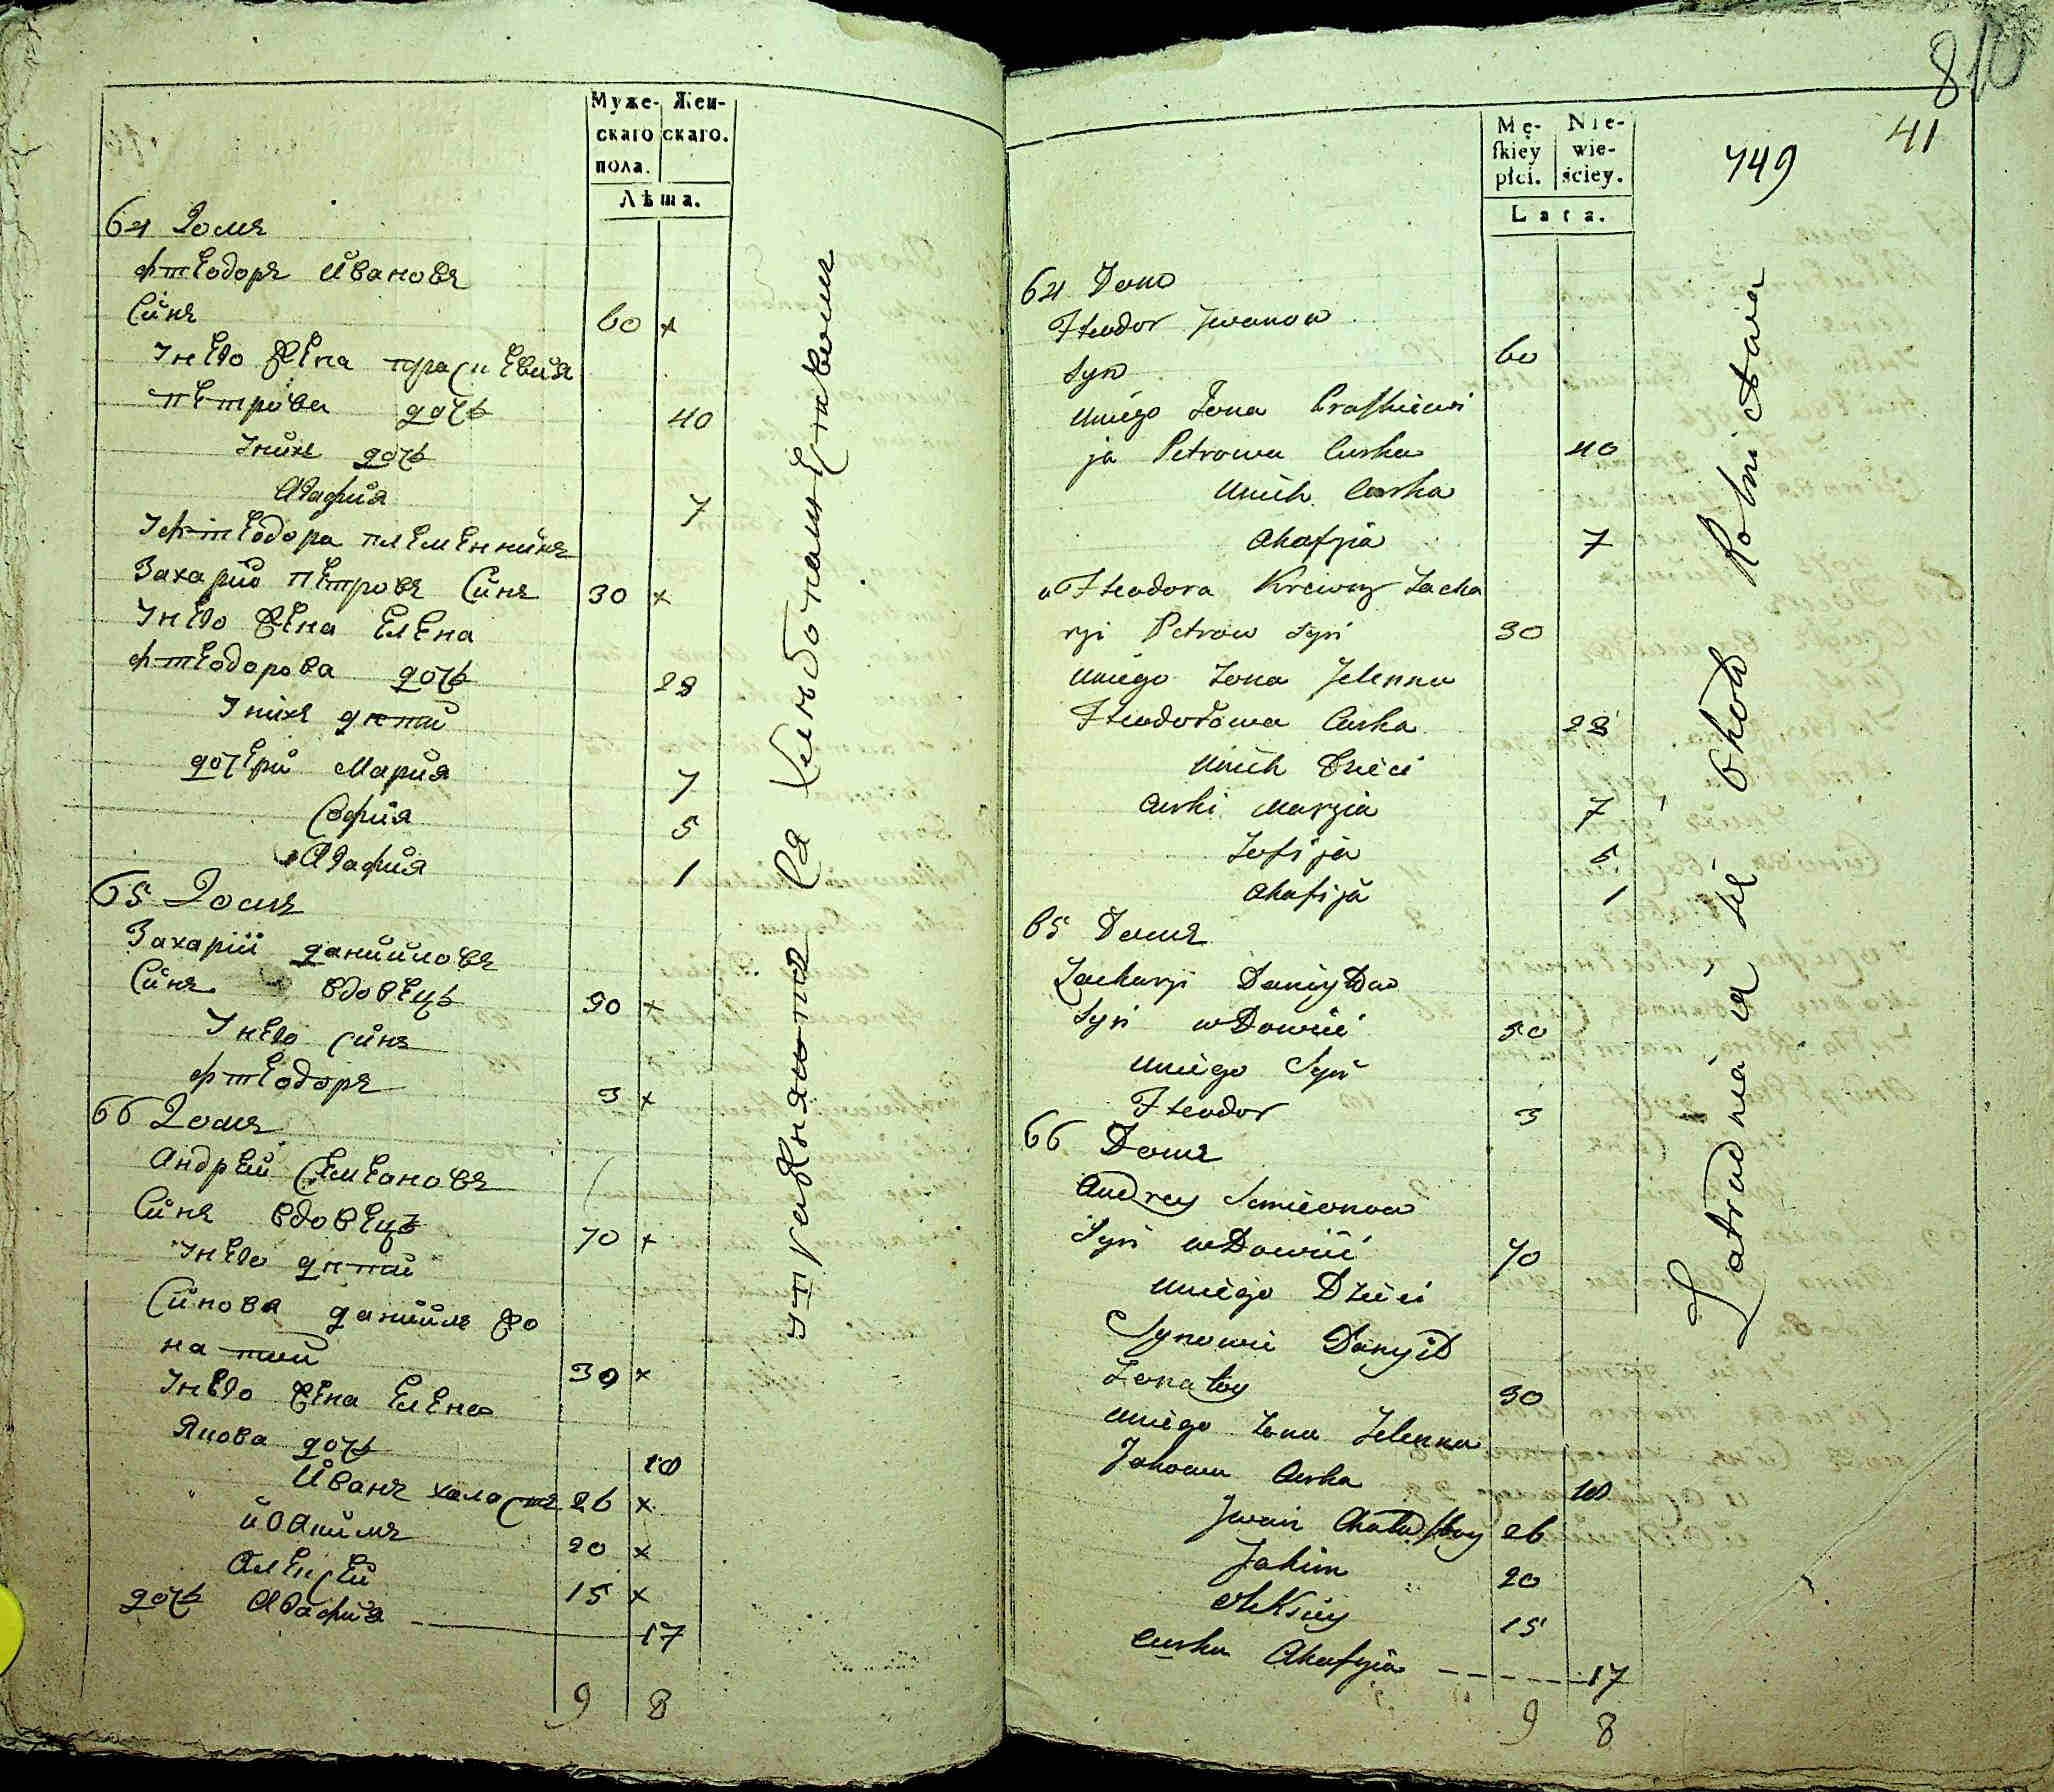 Муже- Жен-
скаго скаго.
пола.
Лѣта.
64 Домъ
фтеодоръ Ивановъ
Синъ 60 x
Унего жена праскевия
петрова дочь 40
Унихъ дочь
Агафия 7
Уфтеодора племенникъ
Захарий петровъ Синъ 30 x
Унего жена Елена
фтеодорова дочь 28
Унихъ дѣти
дочери Мария 7
София 5
Агафия 1
65 Домъ
Захарій даниіловъ
Синъ вдовецъ 50 x
Унего синъ
фтеодоръ 3 x
66 Домъ
Андрей Семеоновъ
Синъ вдовецъ 70 x
Унего дѣти
Синовя даниилъ жо
натий 30 x
Унего жена Елена
Якова дочь
Иванъ холостъ 26 x
иоакимъ 20 x
Алексей 15 x
дочь Агафия 17
9 8
упражняются ся хлѣбопашествомъ
8 10
41
749
Mę- Nie-
skiey wie-
płci. ściey.
Lata.
64 Dom
Fteodor Jwanow
Syn 60
Uniego Żona Praskiewi
ja Petrowa Curka 40
Unich Curka
Ahafyia 7
u Fteodora Krewny Zacha
ryi Petrow Syn 30
Uniego Żona Jelenna
Fteodorowa Curka 28
Unich Dzieci
Curki Maryia 7
Zofija 5
Ahafija 1
65 Domъ
Zacharyi Daniyłow
Syn wDowiec 50
Uniego Syn
Fteodor 3
66 Domъ
Andrey Semieonow
Syn wDowiec 70
Uniego Dzieci
Synowie Danyił
Żonaty 30
Uniego Żona Jelenna
Jakowa Curka
Jwan Chałostoy 26
Jakim 20
Aleksiey 15
Curka Ahafyia 17
9 8
Zatrudniaią się około Rolnictwa